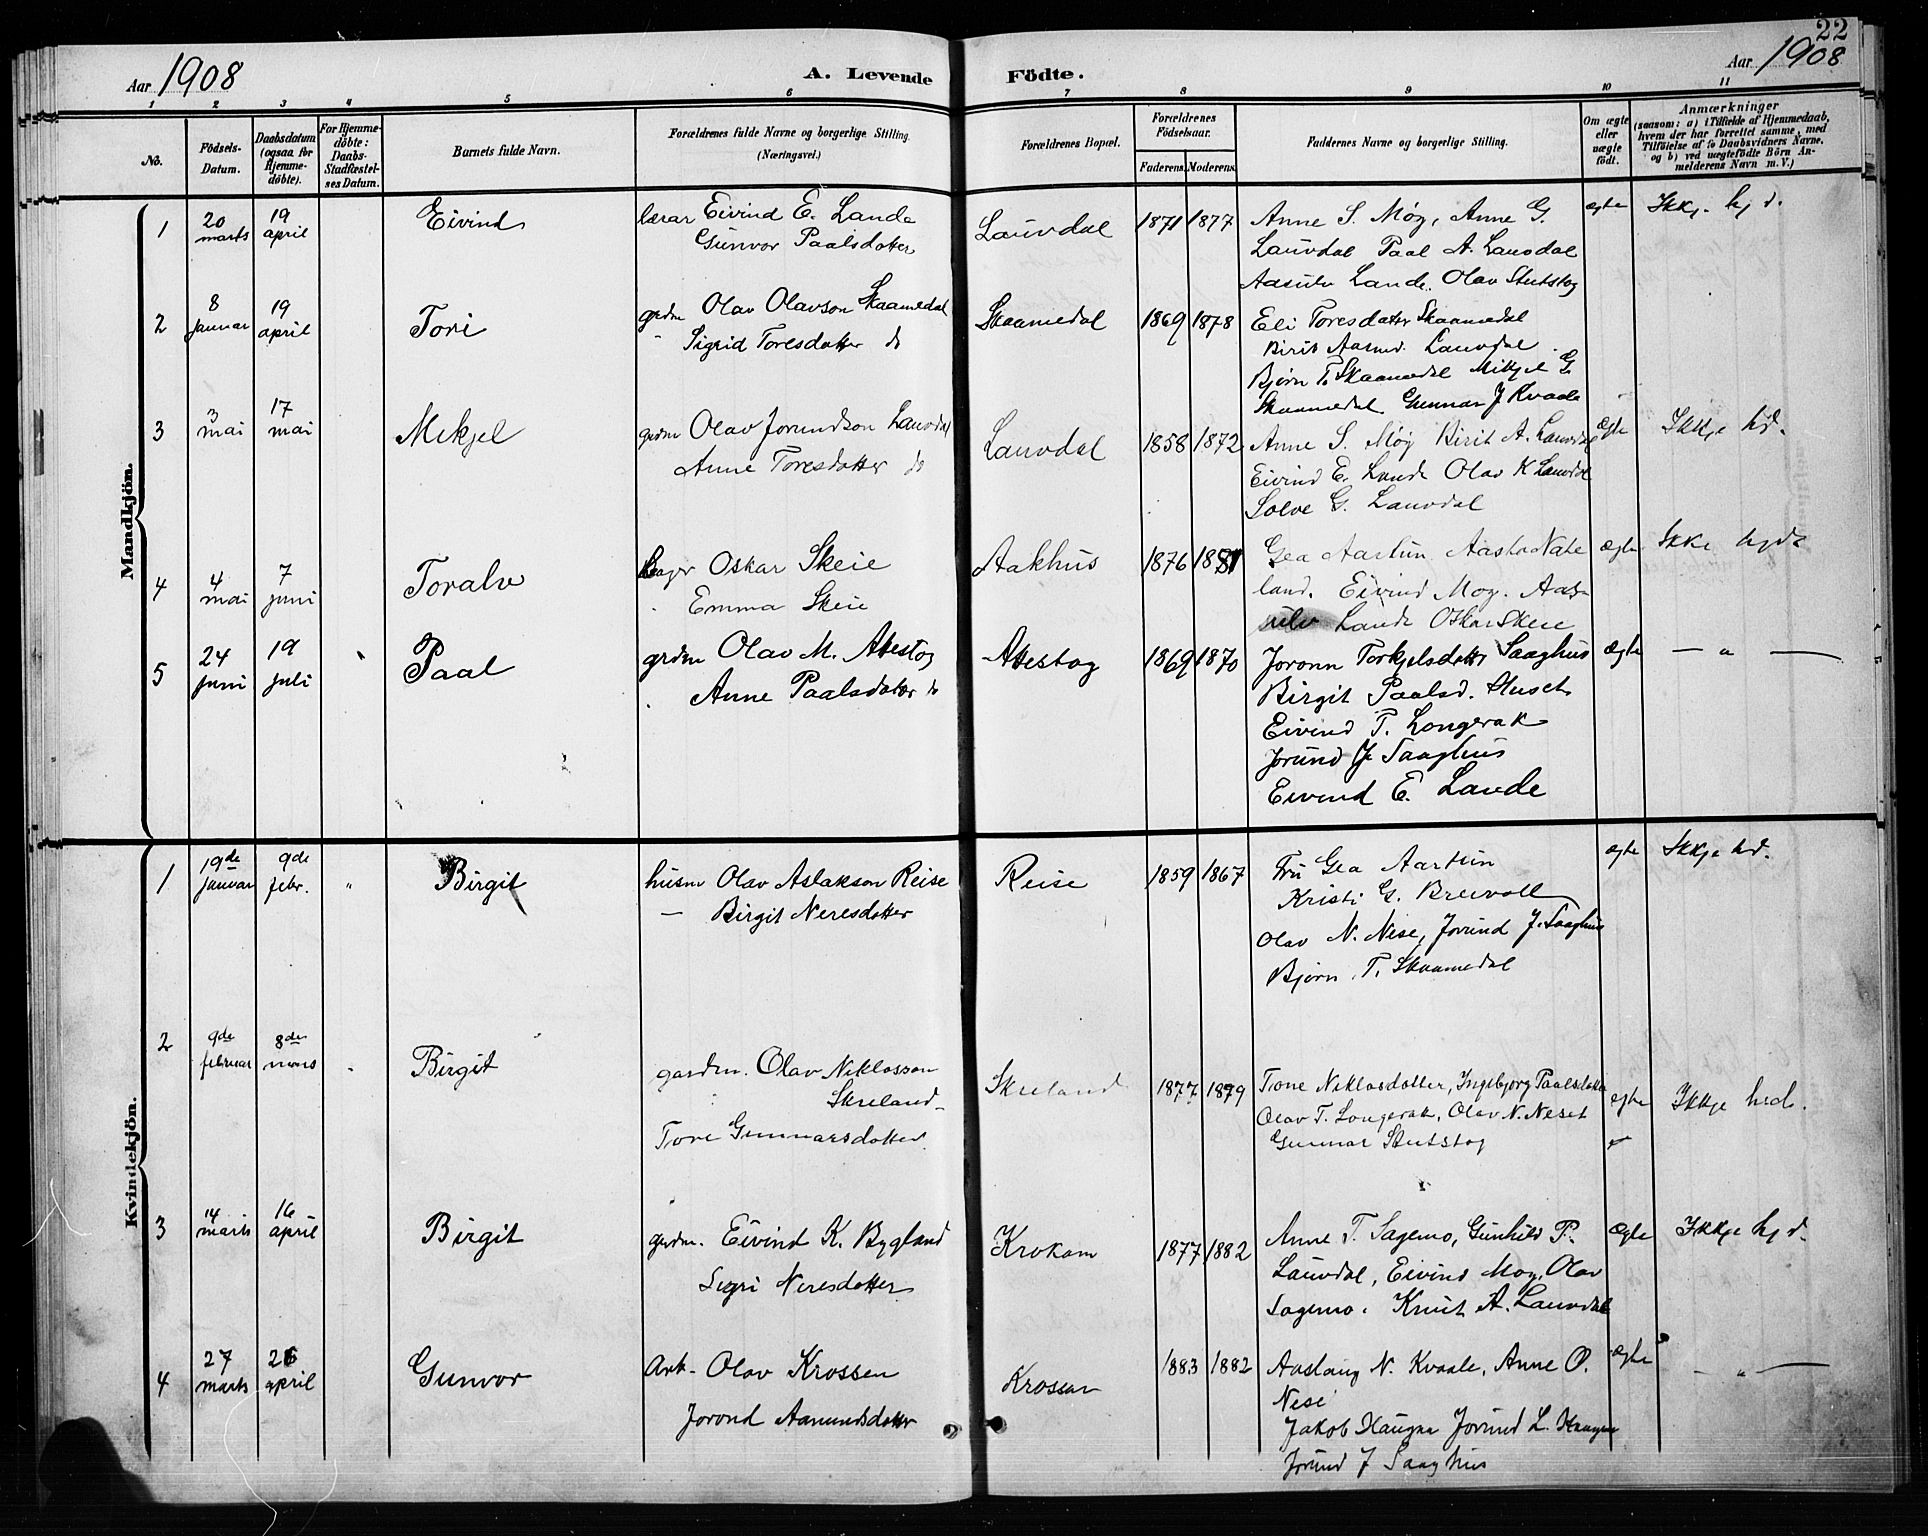 22
Aar 1908
A. Levende Födte.
Aar 1908
1 2 3 4 5 6 7 8 9 10 11
No.
Födsels-
Datum.
Daabsdatum
(ogsaa for
Hjemme-
döbte).
For Hjemme-
döbte:
Daabs-
Stadfæstel-
ses Datum.
Barnets fulde Navn.
Forældrenes fulde Navne og borgerlige Stilling.
(Næringsvei.)
Forældrenes Bopæl.
Forældrenes
Födselsaar.
Faderens. Moderens.
Faddernes Navne og borgerlige Stilling.
Om ægte
eller
uægte
födt.
Anmærkninger
(saasom: a) i Tilfælde af Hjemmedaab,
hvem der har forrettet samme, med
Tilföielse af to Daabsvidners Navne,
og b) ved uægtefödte Börn An-
melderens Navn m. V.)
Mandkjön.
1 20 marts 19 april Eivind
lærar Eivind E. Lande
Gunvor Paalsdotter
Lauvdal 1871 1877
Anne S. Møg, Anne G.
Lauvdal Paal A. Lauvdal
Aasulv Lande. Olav Stutstog
ægte Ikkj. hj d.
2 8 januar 19 april Tori
grdm Olav Olavson Skaamedal
" Sigrid Toresdotter do
Skaamedal 1869 1878
Eli Toresdotter Skaamedal
Birit Aasmd. Lauvdal
Bjørn T. Skaamedal Mikjel G.
Skaamedal Gunnar J Kvaale
3 3 mai 17 mai Mikjel
grdm Olav Jorundson Lauvdal
Anne Toresdotter do
Lauvdal 1858 1872
Anne S. Møg Birit A. Lauvdal
Eivind E. Lande Olav K Lauvdal
Solve G. Lauvdal
Ægte Ikkje hd.
4 4 mai 7 juni Toralv
Bager Oskar Skeie
Emma Skeie
Aakhus 1876 1881
Gea Aartun Aasta Nate
land. Eivind Mog. Aas-
sulv Lande Oskar Skeie
Ægte Ikke hjd
5 24 juni 19 juli Paal
grdm Olav M. Attestog
Anne Paalsdatter do
Attestog 1869 1870
Joronn Torkjelsdotter Saaghus
Birgit Paalsd. Stuset
Eivind T. Longerak
Jorund J Saaghus
Eivind E. Lande
Ægte — " —
Kvindekjön.
1 19de januar 9de febr. " Birgit
husm Olav Aslakson Reise
— Birgit Neresdotter
Reise 1859 1867
Fru Gea Aartun
Kristi G. Breivoll
Olav N. Nese, Jorund J. Saaghus
Bjørn T. Skaamedal
ægte Ikkje hd.
2 9de februar 8de mars Birgit
gardm. Olav Niklosson
Skreland
Tore Gunnarsdotter
Skreland 1877 1879
Tone Niklosdotter, Ingebjorg Paalsdotter
Olav T. Longerak, Olav N. Neset
Gunnar Stutstog
ægte Ikkje hed.
3 14 marts 16 april Birgit
grdm. Eivind K. Bygland
Sigri Neresdotter
Krokam 1877 1882
Anne T. Sagemo, Gunhild P.
Lauvdal, Eivind Mog, Olav
Sagemo. Knut A. Lauvdal
Ægte Ikkje hj d.
4 27 marts 26 april Gunvor
Arb- Olav Krossen
Jorond Aamundsdotter
Krossen 1883 1882
Aaslaug N. Kvaale, Anne O.
Nesi
Jakob Haugaa Jorund L. Haugaa
Jorund J Saaghus
ægte — " —